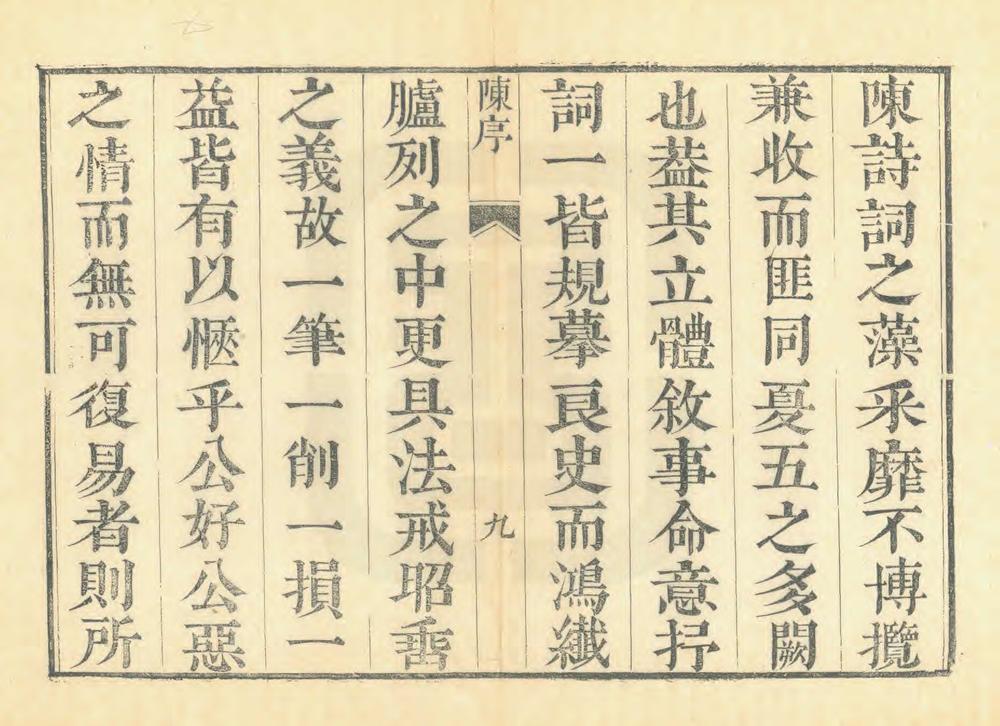 陳詩詞之藻采靡不博攬
兼收而匪同憂五之多闕
也葢其立體敘事命意抒
詞一皆規摹良史而鴻纖
陳序
九
臚列之中更具法戒昭垂
之義故一筆一削一損一
益皆有以愜乎公好公惡
之情而無可復易者則所